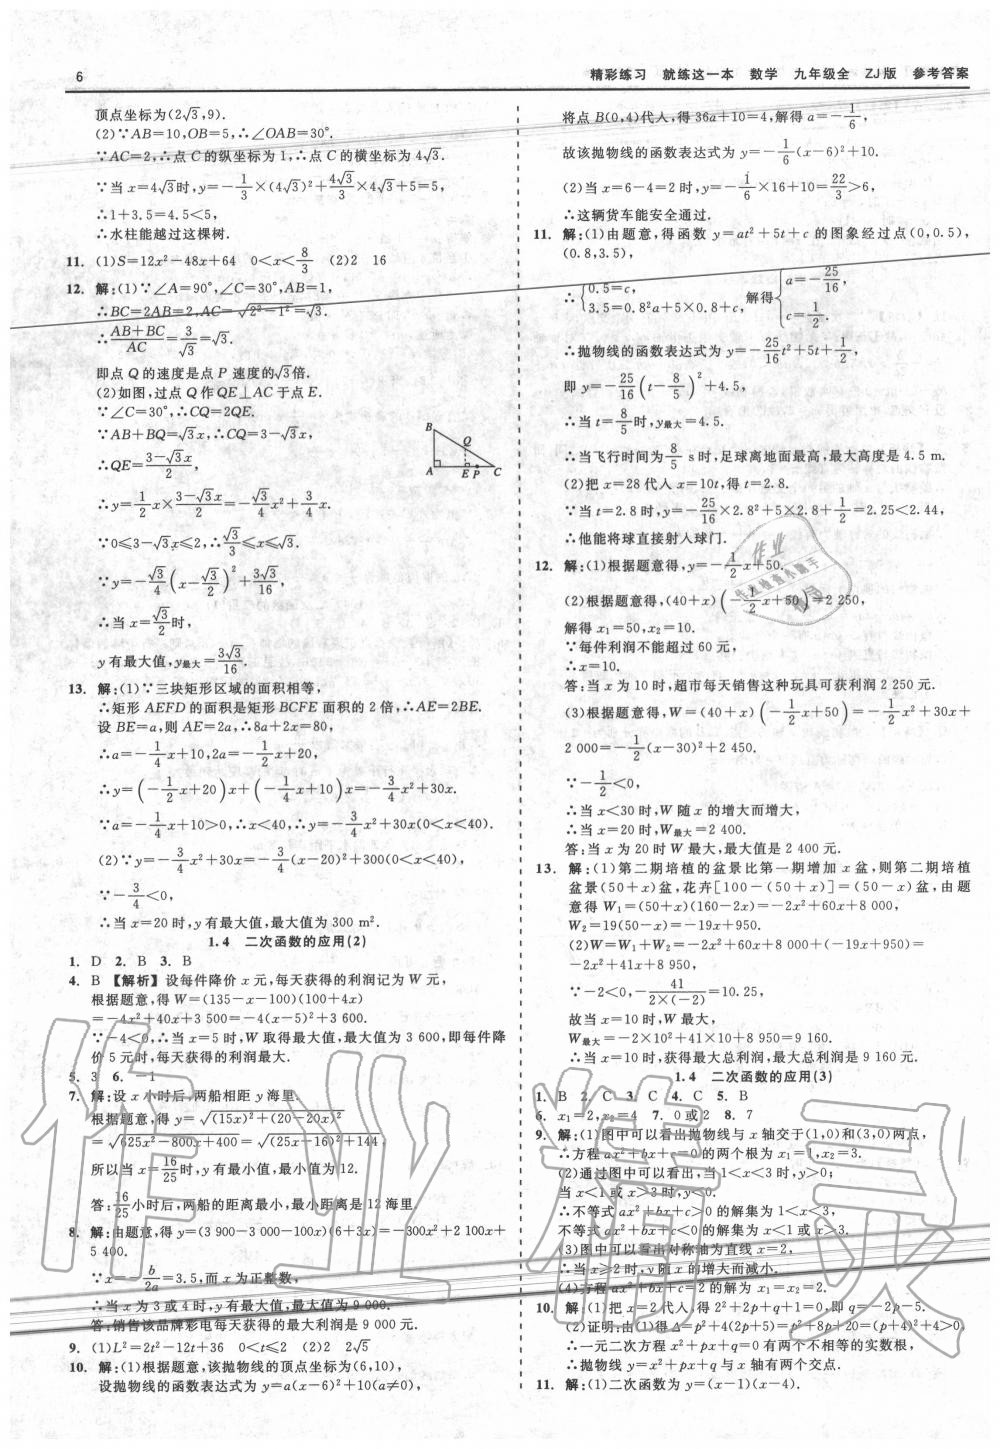 6
精彩练习 就练这一本 数学 九年级全 ZJ版 参考答案
顶点坐标为(2√3,9).
(2)∵AB=10,OB=5,∴∠OAB=30°.
∵AC=2,∴点C的纵坐标为1,∴点C的横坐标为4√3.
∵当x=4√3时,y=-1/3×(4√3)²+4√3/3×4√3+5=5,
∴1+3.5=4.5<5,
∴水柱能越过这棵树.
11. (1)S=12x²-48x+64 0<x<8/3 (2)2 16
12. 解:(1)∵∠A=90°,∠C=30°,AB=1,
∴BC=2AB=2,AC=√(2²-1²)=√3.
∴(AB+BC)/AC=3/√3=√3.
即点Q的速度是点P速度的√3倍.
(2)如图,过点Q作QE⊥AC于点E.
∵∠C=30°,∴CQ=2QE.
∵AB+BQ=√3x,∴CQ=3-√3x.
∴QE=(3-√3x)/2,
∴y=1/2x×(3-√3x)/2=-√3/4x²+3/4x.
∵0≤3-√3x≤2,∴√3/3≤x≤√3.
∵y=-√3/4(x-√3/2)²+3√3/16,
∴当x=√3/2时,
y有最大值,y最大=3√3/16.
B
Q
A
E P C
13. 解:(1)∵三块矩形区域的面积相等,
∴矩形AEFD的面积是矩形BCFE面积的2倍,∴AE=2BE.
设BE=a,则AE=2a,∴8a+2x=80,
∴a=-1/4x+10,2a=-1/2x+20,
∴y=(-1/2x+20)x+(-1/4x+10)x=-3/4x²+30x.
∵a=-1/4x+10>0,∴x<40,∴y=-3/4x²+30x(0<x<40).
(2)∵y=-3/4x²+30x=-3/4(x-20)²+300(0<x<40),
∵-3/4<0,
∴当x=20时,y有最大值,最大值为300 m².
1.4 二次函数的应用(2)
1. D 2. B 3. B
4. B 【解析】设每件降价x元,每天获得的利润记为W元,
根据题意,得W=(135-x-100)(100+4x)
=-4x²+40x+3 500=-4(x-5)²+3 600.
∵-4<0,∴当x=5时,W取得最大值,最大值为3 600,即每件降
价5元时,每天获得的利润最大.
5. 3 6. -1
7. 解:设x小时后,两船相距y海里.
根据题意,得y=√((15x)²+(20-20x)²)
=√(625x²-800x+400)=√((25x-16)²+144),
所以当x=16/25时,y有最小值,最小值为12.
答:16/25小时后,两船的距离最小,最小距离是12海里.
8. 解:由题意,得y=(3 900-3 000-100x)(6+3x)=-300x²+2 100x+
5 400.
∵x=-b/2a=3.5,而x为正整数,
∴当x为3或4时,y有最大值,最大值为9 000.
答:销售该品牌彩电每天获得的最大利润是9 000元.
9. (1)L²=2t²-12t+36 0<t≤2 (2)2 2√5
10. 解:(1)根据题意,该抛物线的顶点坐标为(6,10),
设抛物线的函数表达式为y=a(x-6)²+10(a≠0),
将点B(0,4)代入,得36a+10=4,解得a=-1/6,
故该抛物线的函数表达式为y=-1/6(x-6)²+10.
(2)当x=6-4=2时,y=-1/6×16+10=22/3>6,
∴这辆货车能安全通过.
11. 解:(1)由题意,得函数y=at²+5t+c的图象经过点(0,0.5),
(0.8,3.5),
∴{0.5=c, 3.5=0.8²a+5×0.8+c, 解得{a=-25/16, c=1/2.
∴抛物线的函数表达式为y=-25/16t²+5t+1/2,
即y=-25/16(t-8/5)²+4.5,
∴当t=8/5时,y最大=4.5.
∴当飞行时间为8/5 s时,足球离地面最高,最大高度是4.5 m.
(2)把x=28代入x=10t,得t=2.8.
∵当t=2.8时,y=-25/16×2.8²+5×2.8+1/2=2.25<2.44,
∴他能将球直接射入球门.
12. 解:(1)根据题意得,y=-1/2x+50.
(2)根据题意得,(40+x)(-1/2x+50)=2 250,
解得x₁=50,x₂=10.
∵每件利润不能超过60元,
∴x=10.
答:当x为10时,超市每天销售这种玩具可获利润2 250元.
(3)根据题意得,W=(40+x)(-1/2x+50)=-1/2x²+30x+
2 000=-1/2(x-30)²+2 450.
∵-1/2<0,
∴当x<30时,W随x的增大而增大,
∴当x=20时,W最大=2 400.
答:当x为20时W最大,最大值是2 400元.
13. 解:(1)第二期培植的盆景比第一期增加x盆,则第二期培植
盆景(50+x)盆,花卉[100-(50+x)]=(50-x)盆,由题
意得W₁=(50+x)(160-2x)=-2x²+60x+8 000,
W₂=19(50-x)=-19x+950.
(2)W=W₁+W₂=-2x²+60x+8 000+(-19x+950)=
-2x²+41x+8 950,
∵-2<0,-41/(2×(-2))=10.25,
故当x=10时,W最大,
W最大=-2×10²+41×10+8 950=9 160.
∴当x=10时,获得最大总利润,最大总利润是9 160元.
1.4 二次函数的应用(3)
1. B 2. C 3. C 4. C 5. B
6. x₁=2,x₂=4 7. 0或2 8. 7
9. 解:(1)图中可以看出抛物线与x轴交于(1,0)和(3,0)两点,
∴方程ax²+bx+c=0的两个根为x₁=1,x₂=3.
(2)通过图中可以看出,当1<x<3时,y>0;
当x<1或x>3时,y<0.
∴不等式ax²+bx+c>0的解集为1<x<3,
不等式ax²+bx+c<0的解集为x<1或x>3.
(3)图中可以看出对称轴为直线x=2,
∴当x>2时,y随x的增大而减小.
(4)方程ax²+bx+c=2的解为x₁=x₂=2.
10. 解:(1)把x=2代入,得2²+2p+q+1=0,即q=-2p-5.
(2)证明:由(1)得Δ=p²+4(2p+5)=p²+8p+20=(p+4)²+4>0,
∴一元二次方程x²+px+q=0有两个不相等的实根.
∴抛物线y=x²+px+q与x轴有两个交点.
11. 解:(1)二次函数为y=(x-1)(x-4).
作业精灵
作业
作业检查小助手